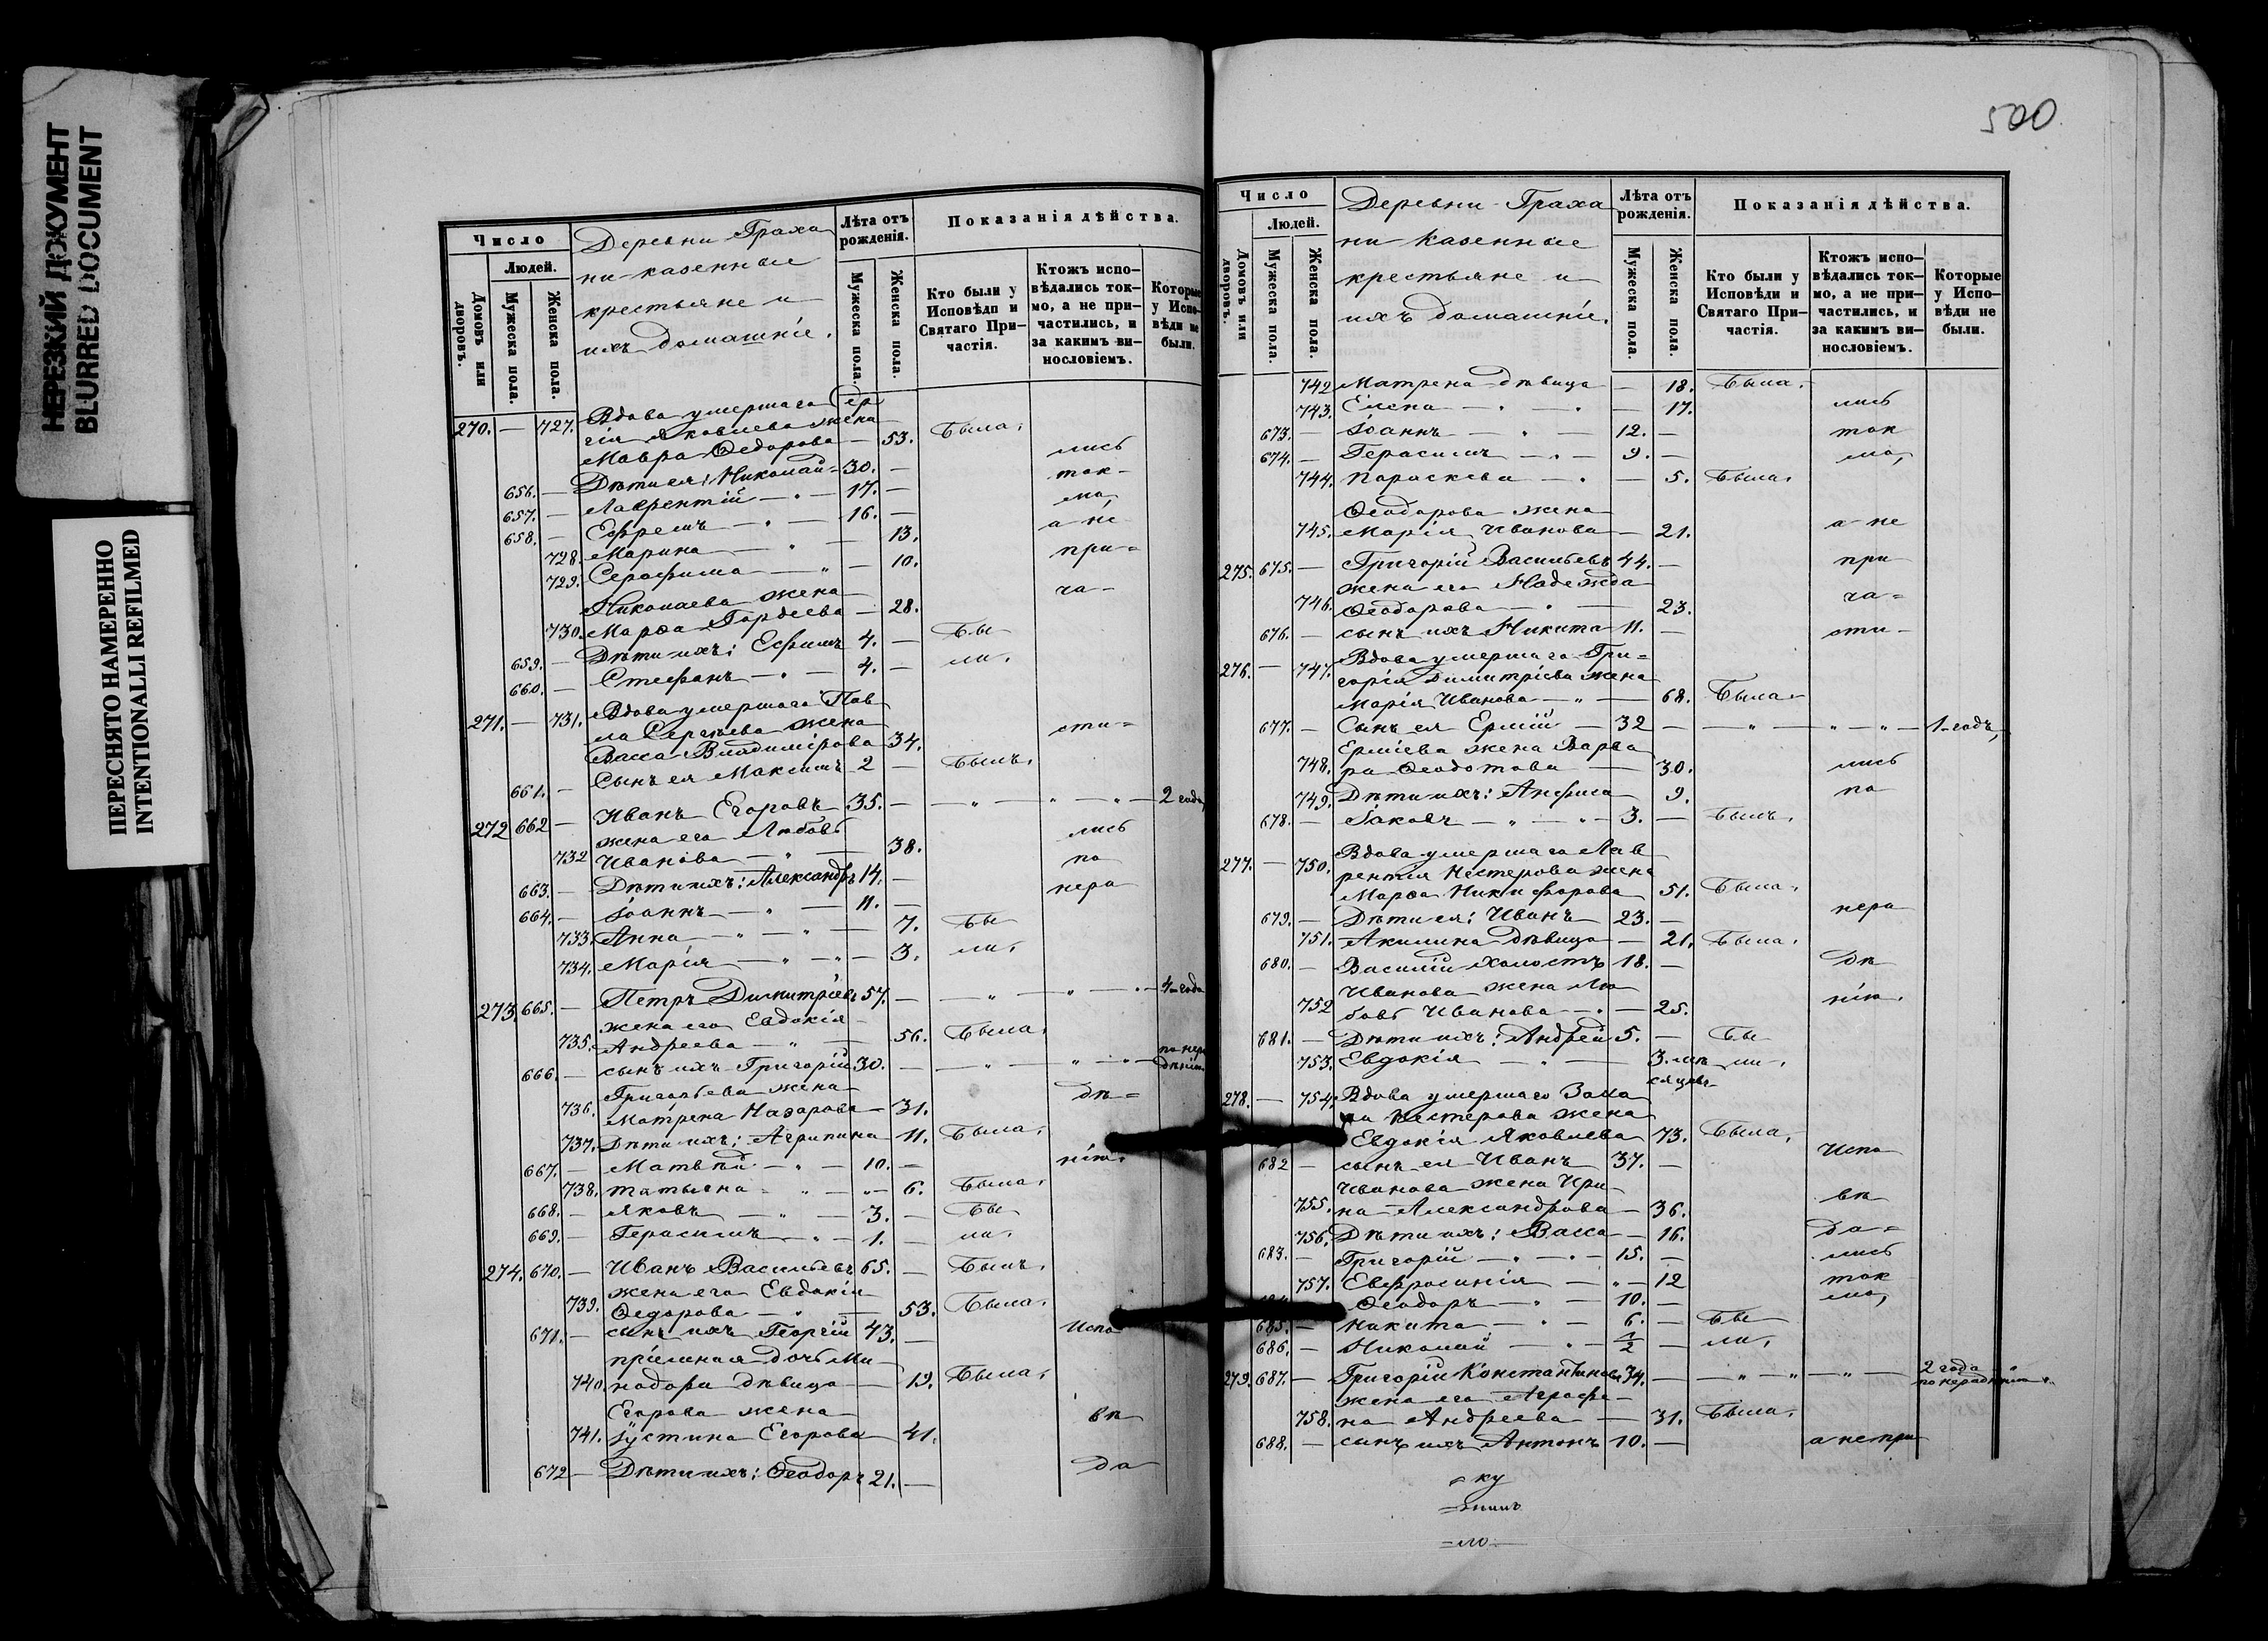 НЕРЕЗКИЙ ДОКУМЕНТ
BLURRED DOCUMENT
ПЕРЕСНЯТО НАМЕРЕННО
INTENTIONALLI REFILMED
Число
Людей.
Домовъ или дворовъ.
Мужеска пола.
Женска пола.
Деревни Граха
ни казенные
крестьяне и
ихъ домашніе.
Лѣта отъ рожденія.
Мужеска пола.
Женска пола.
Показанія дѣйства.
Кто были у Исповѣди и Святаго Причастія.
Ктожъ исповѣдались токмо, а не причастились, и за какимъ винословіемъ.
Которые у Исповѣди не были.
270. — 727. Вдова умершаго Сер
гія Яковлева жена
Мавра Ѳедорова — 53. Была.
лись
656. — Дѣти ея: Николай 30. — ток-
657. — Лаврентій — 17. — мо,
658. — Ефремъ — 16. — а не
728. Марина — 13. при=
729. Серафима — 10.
Николаева жена ча-
730. Марѳа Гордеева — 28.
659. — Дѣти ихъ: Ефимъ 4. — Бы
660. — Стефанъ — 4. — ли.
271. — 731. Вдова умершаго Пав
ла Сергѣева жена сти=
Васса Владимірова 34.
661. — Сынъ ея Максимъ 2 — Былъ.
272 662 — Иванъ Егоровъ 35. — — „ — „ — „ — 2 года,
жена его Любовь лись
732 Иванова — „ — 38. по
663. — Дѣти ихъ: Александръ 14. — нера
664. — Іоаннъ — „ — 11. —
733. Анна — „ — „ — 7. Бы
734. Марія — „ — „ — 3. ли.
273. 665. — Петръ Димитріевъ 57. — — „ — „ — 4 года
жена его Евдокія
735. Андреева — „ — 56. Была.
666. — сынъ ихъ Григорій 30. — — „ — „ — „ — по нера
дѣнію.
Григорьева жена дѣ=
736. Матрена Назарова — 31.
737. Дѣти ихъ: Агрипина 11. Была.
667. — Матвѣй — „ — 10. — нію.
738. Татьяна — „ — „ — 6. Была.
668. — Яковъ — „ — 3. — Бы
669. — Герасимъ — „ — 1. — ли.
274. 670. — Иванъ Васильевъ 65. — Былъ.
жена его Евдокія
739. Ѳедорова — „ — 53. Была.
671. — сынъ ихъ Георгій 43. — Испо
пріемная дочь Ми
740. нодора дѣвица — 19. Была.
Егорова жена вѣ
741. Іустина Егорова 41.
672 — Дѣти ихъ: Ѳеодоръ 21. — да
500
Число
Людей.
Домовъ или дворовъ.
Мужеска пола.
Женска пола.
Деревни Граха
ни казенные
крестьяне и
ихъ домашніе.
Лѣта отъ рожденія.
Мужеска пола.
Женска пола.
Показанія дѣйства.
Кто были у Исповѣди и Святаго Причастія.
Ктожъ исповѣдались токмо, а не причастились, и за какимъ винословіемъ.
Которые у Исповѣди не были.
742 Матрена дѣвица — 18. Была.
743. Елена — „ — „ — 17. лись
673. — Іоаннъ — „ — 12. — ток
674. — Герасимъ — „ — 9. — мо,
744. Параскева — „ — 5. Была.
Ѳеодорова жена
745. Марія Иванова — 21. а не
275. 675. — Григорій Васильевъ 44. — при
жена его Надежда
746. Ѳеодорова — „ — 23. ча=
676. — сынъ ихъ Никита 11. — сти-
276. — 747. Вдова умершаго Гри=
горія Димитріева жена
Марія Иванова — „ — 68. Была.
677. — Сынъ ея Ермій — 32 — — „ — „ — „ — 1 годъ,
Ерміева жена Варва
748. ра Ѳеодотова — 30. лись
749. Дѣти ихъ: Анфиса 9. по
678. — Іаковъ — „ — „ — 3. — Былъ.
277. — 750. Вдова умершаго Лав
рентія Нестерова жена
Марѳа Никифорова 51. Была.
679. — Дѣти ея: Иванъ 23. — нера
751. Акилина дѣвица — 21. Была.
680. — Василій холостъ 18. — дѣ
Иванова жена Лю
752 бовь Иванова — „ — 25. нію.
681. — Дѣти ихъ: Андрей 5. — Бы
753. Евдокія — „ — 3. мѣ ли.
сяцевъ
278. — 754. Вдова умершаго Заха
ра Нестерова жена
Евдокія Яковлева 73. Была.
682 — сынъ ея Иванъ 37. — Испо
Иванова жена Ири
755. на Александрова — 36. вѣ
756. Дѣти ихъ: Васса — 16. да=
683. — Григорій — „ — „ — 15. — лись
757. Евфросинія — „ — 12 ток
Ѳеодоръ — „ — 10. — мо,
685. — Никита — „ — 6. — Бы
686. — Николай — „ — 1/2 — ли.
279. 687. — Григорій Константиновъ 34. — — „ — „ — „ — 2 года
по нерадѣнію.
жена его Аграфе
758. на Андреева — 31. Была.
688. — сынъ ихъ Антонъ 10. — а не при